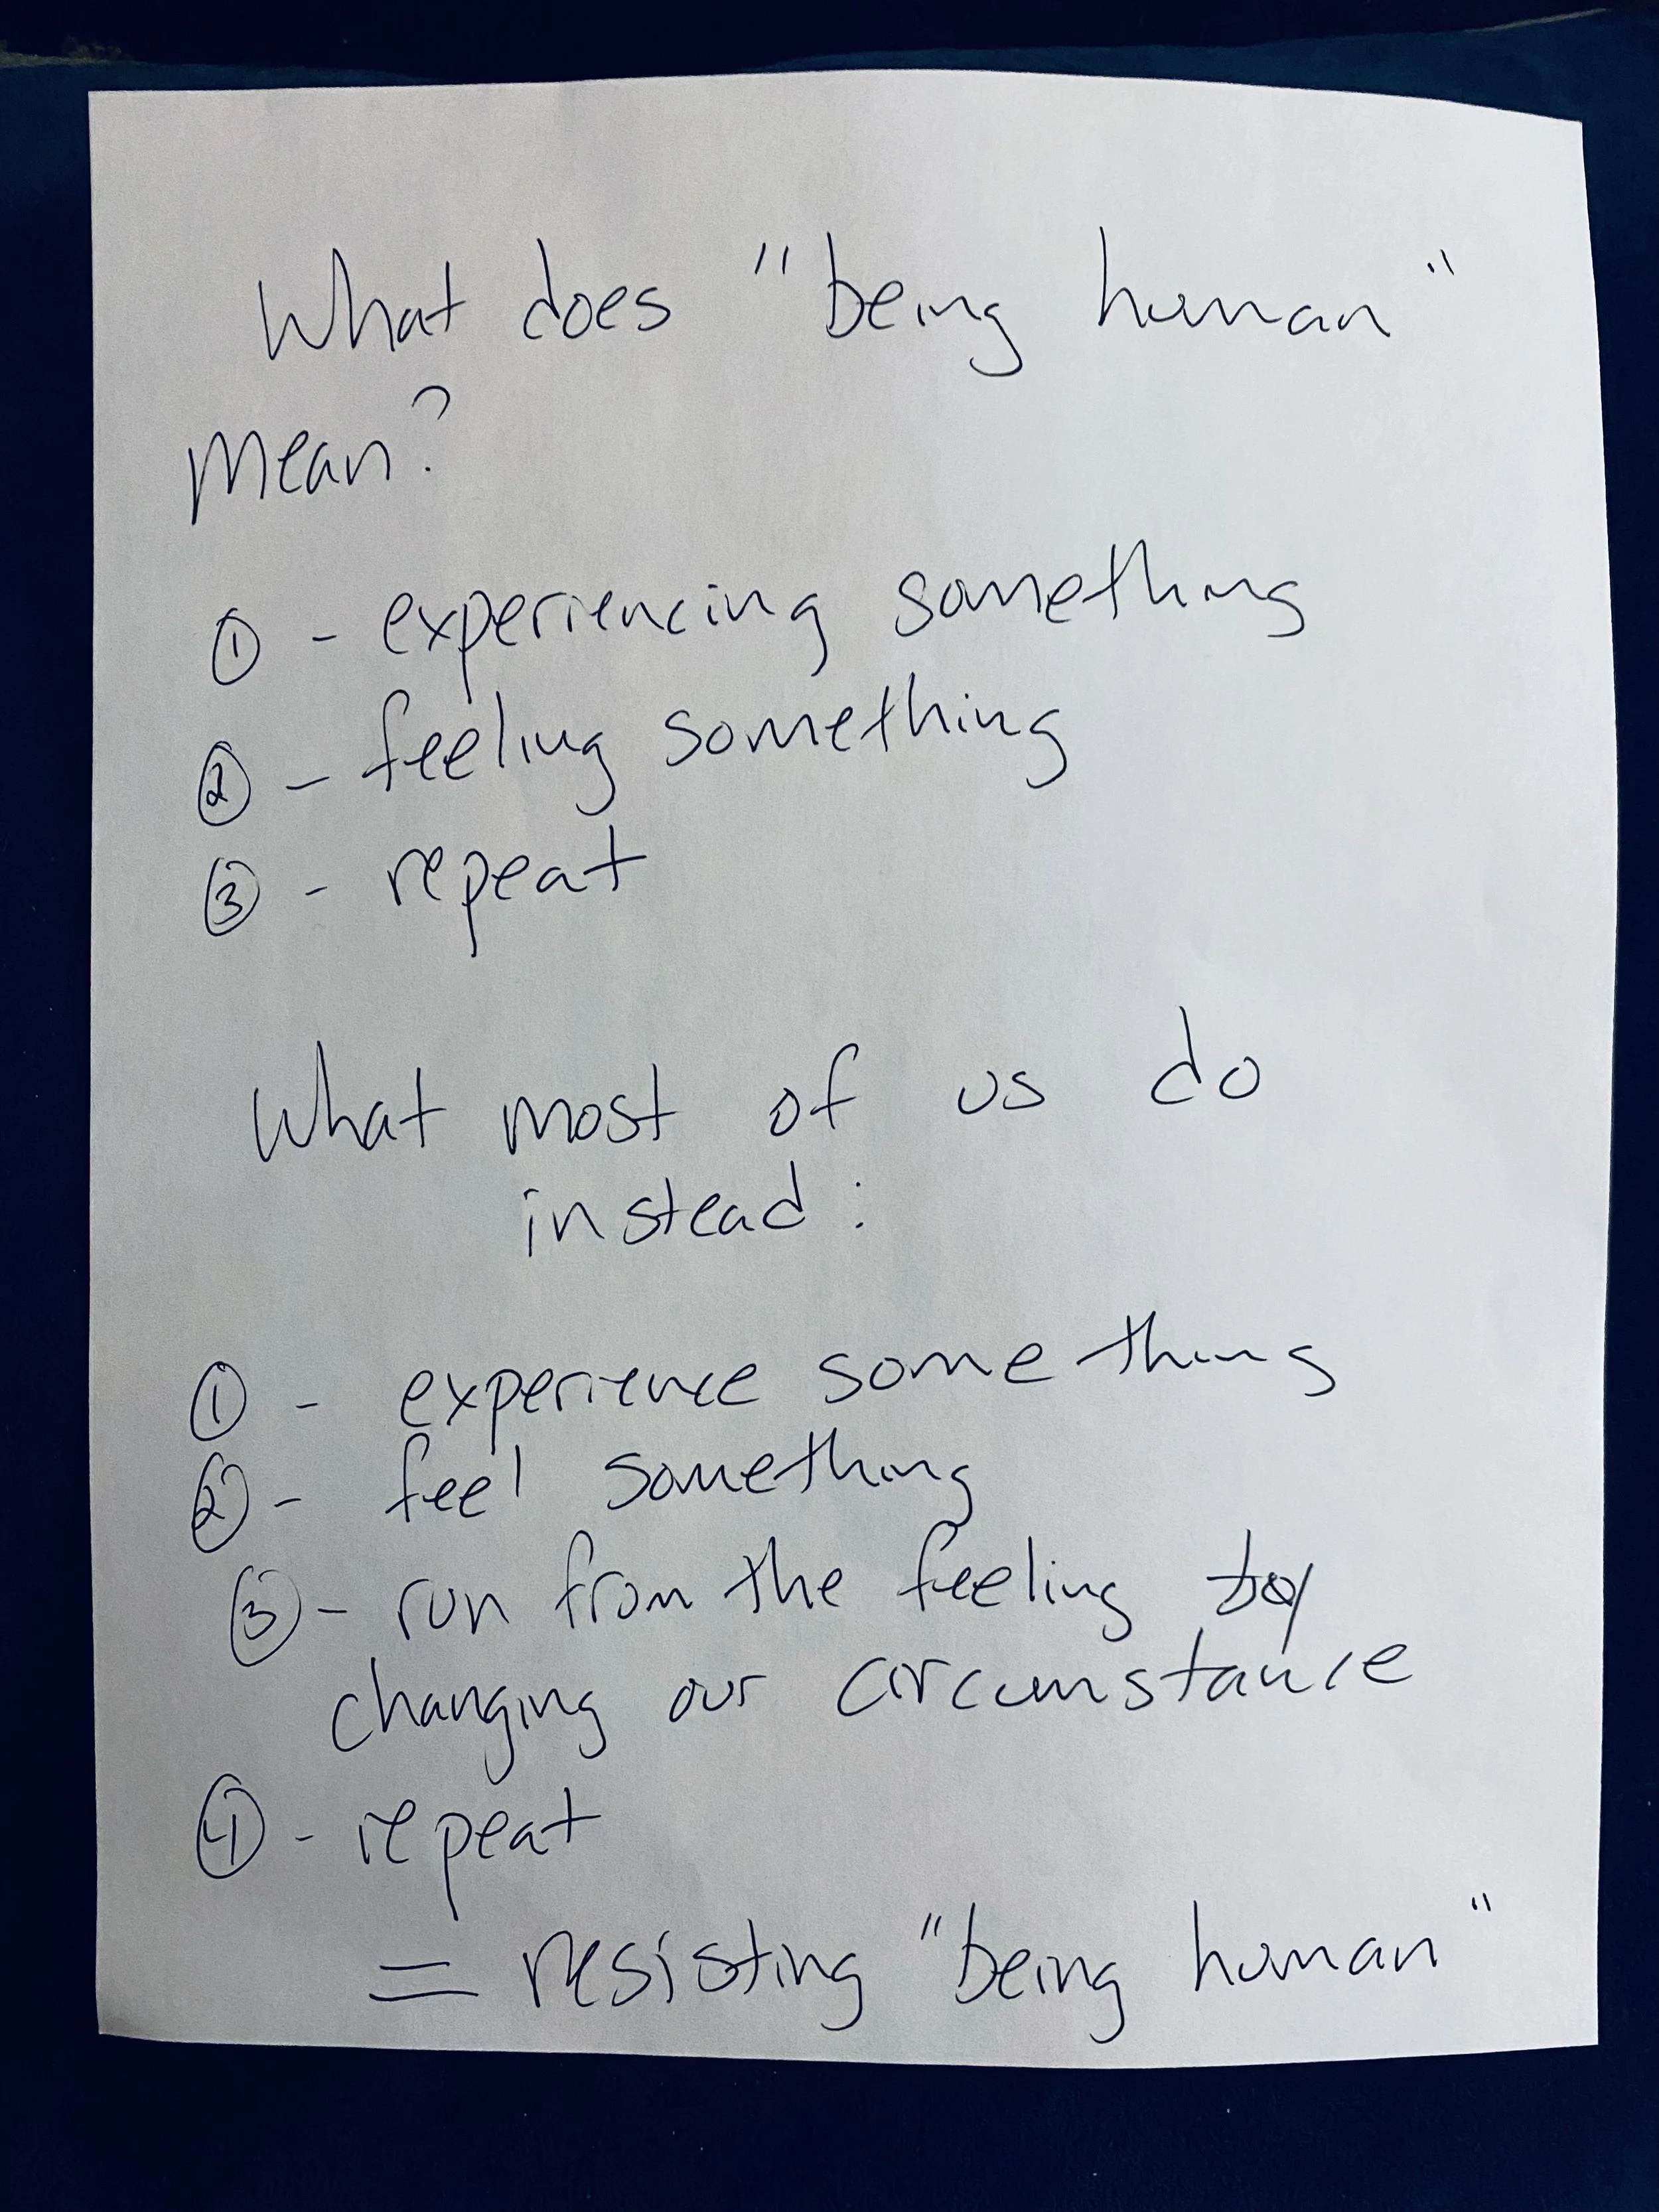 What does "being human"
mean?
① - experiencing something
② - feeling something
③ - repeat
What most of us do
instead:
① - experience something
② - feel something
③ - run from the feeling by
changing our circumstance
④ - repeat
= resisting "being human"